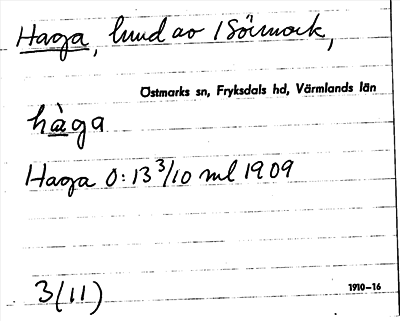 Haga, lmd av 1 Sörmark,
Östmarks sn, Fryksdals hd, Värmlands län
hàga
Haga 0:13 3/10 ml 1909
3(11)
1910-16